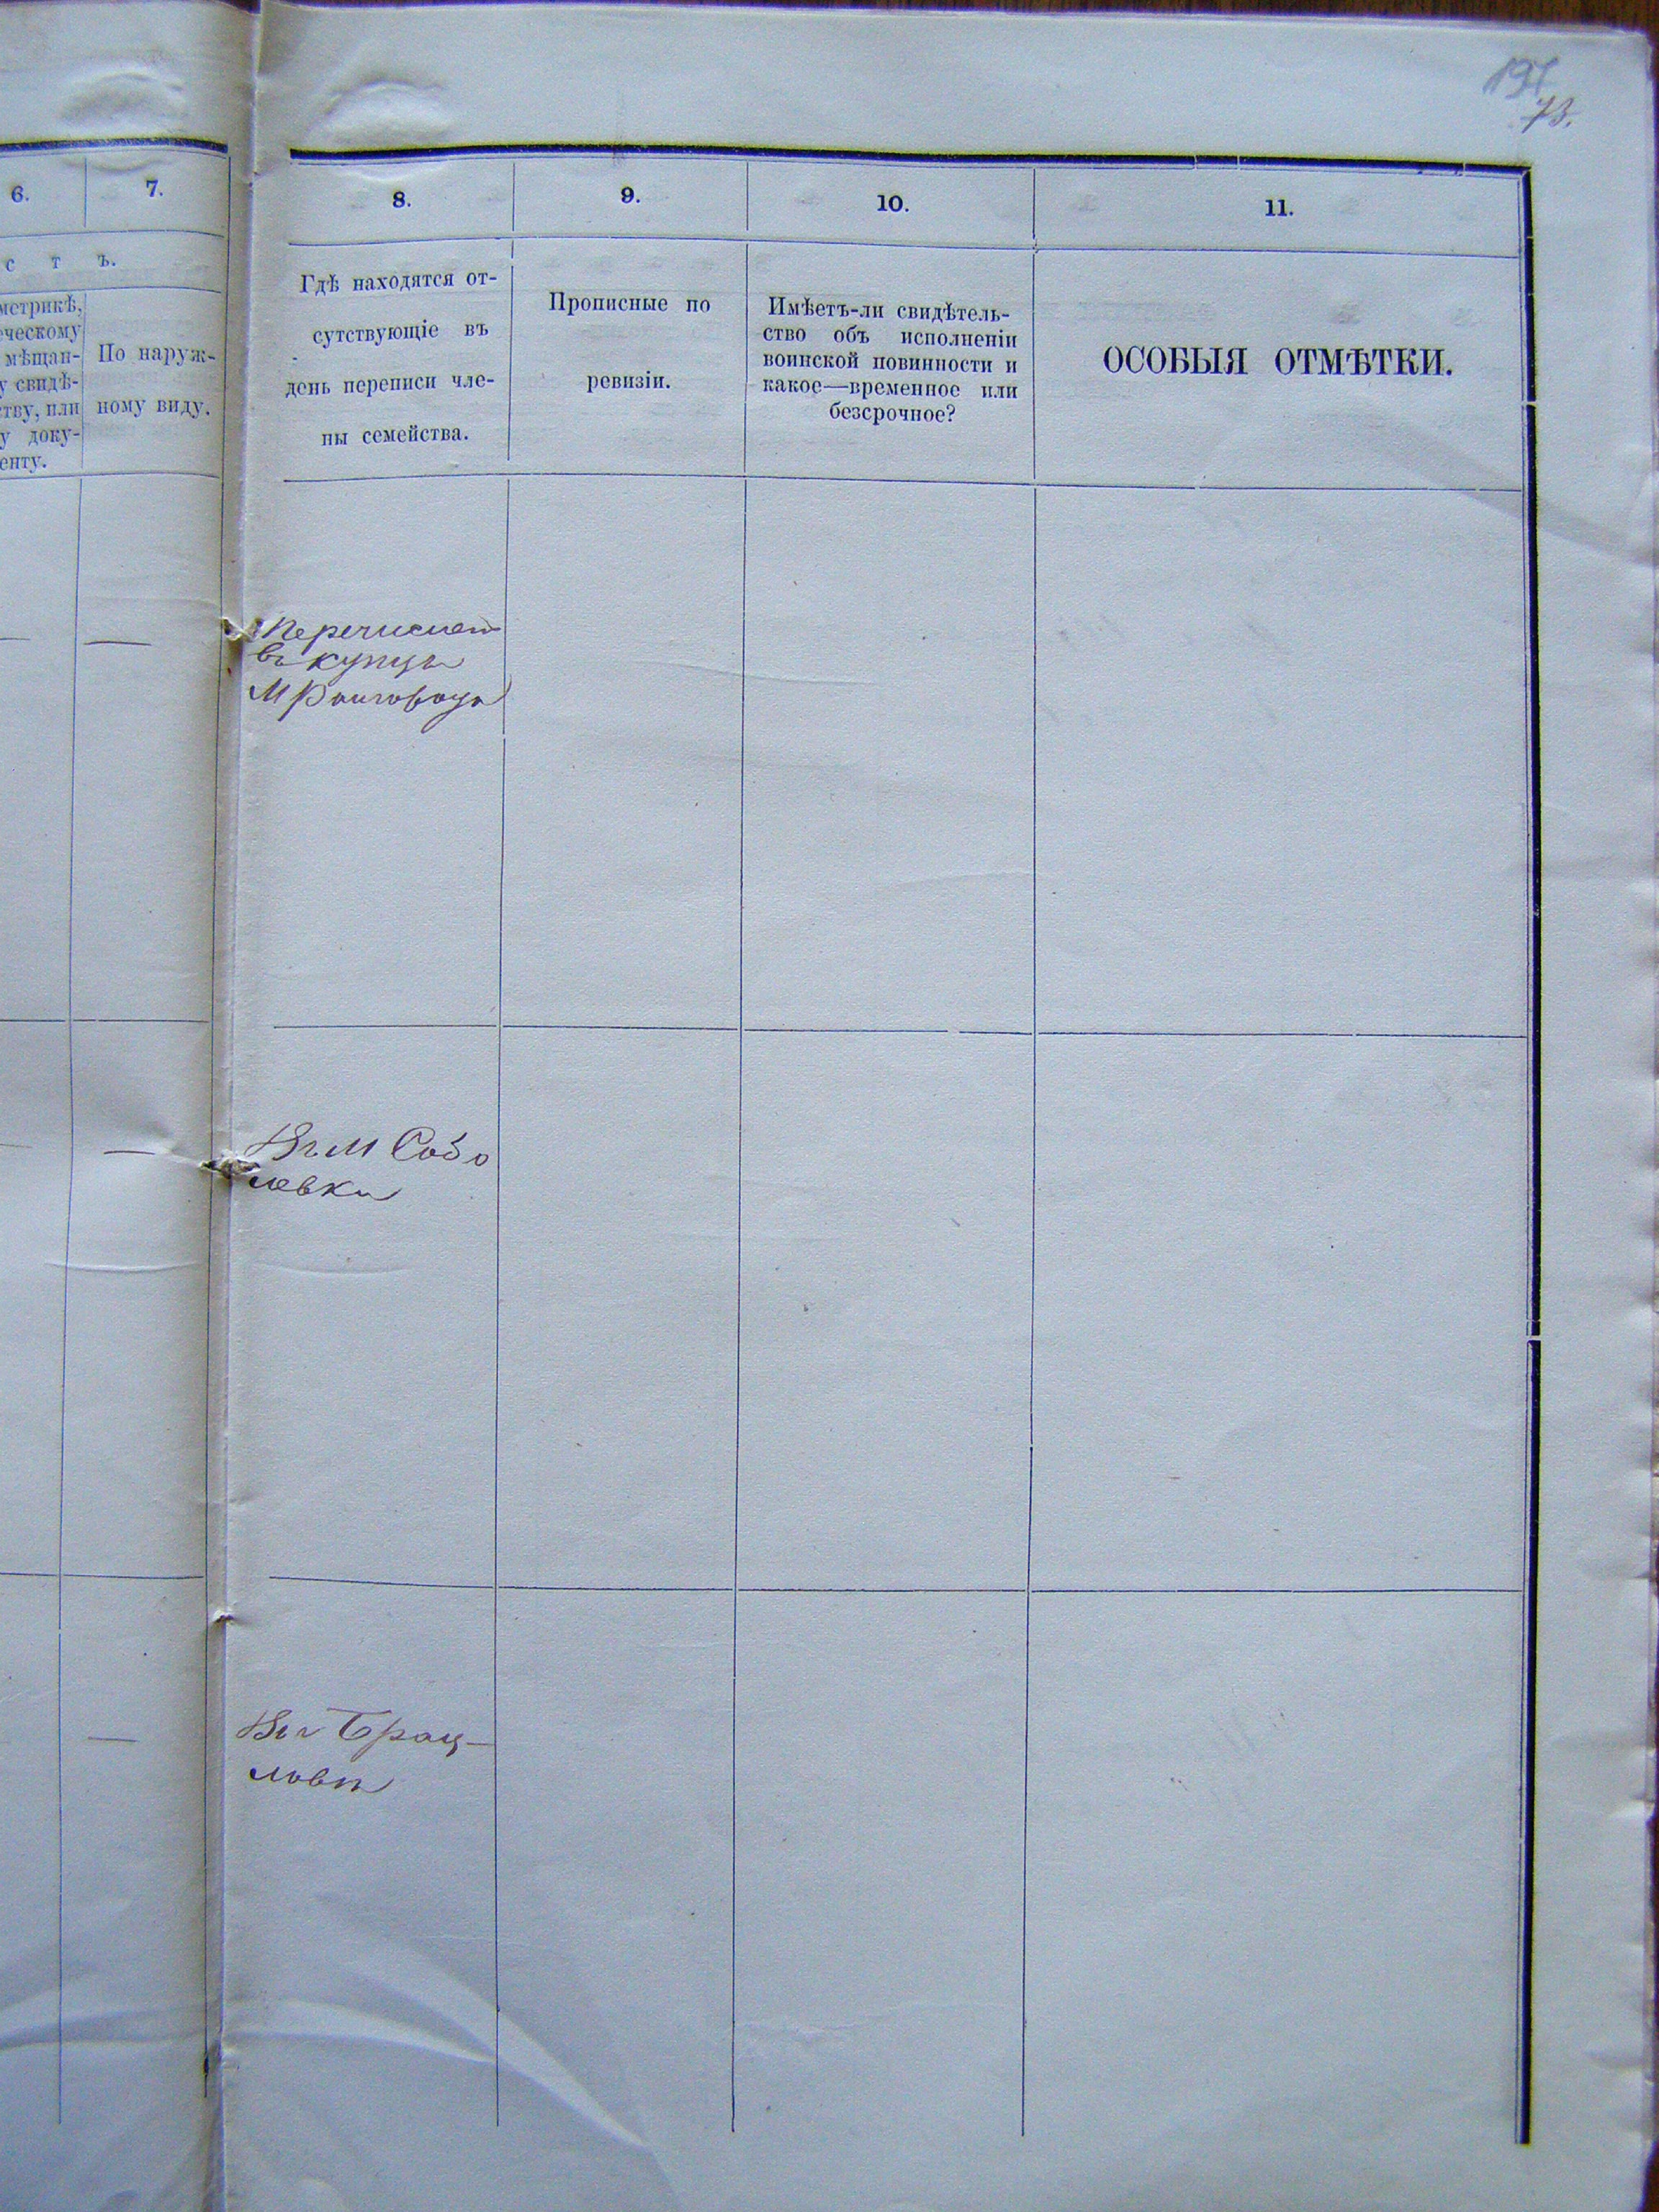 197
73.
6.
7.
8.
9.
10.
11.
с т ъ.
метрикѣ,
ческому
мѣщан-
у свидѣ-
ству, или
у доку-
енту.
По наруж-
ному виду.
Гдѣ находятся от-
сутствующіе въ
день переписи чле-
ны семейства.
Прописные по
ревизіи.
Имѣетъ-ли свидѣтель-
ство объ исполненіи
воинской повинности и
какое—временное или
безсрочное?
ОСОБЫЯ ОТМѢТКИ.
Перечислен
въ купцы
М
Въ М Собо
левки
Въ г Брац-
лавѣ